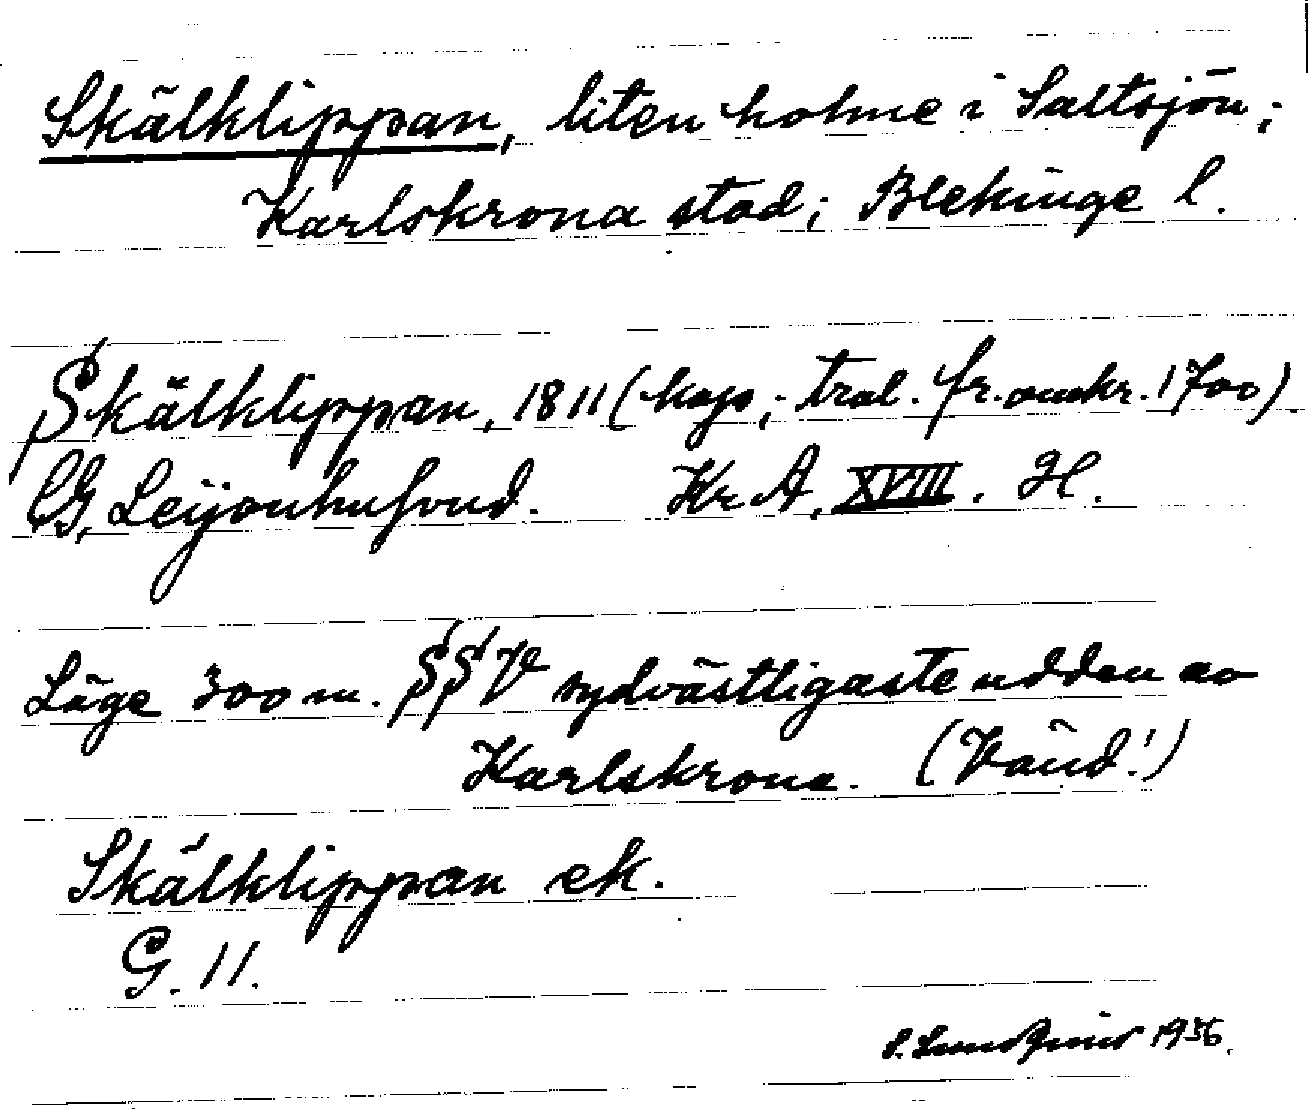 Skälklippan, liten holme i Saltsjön;
Karlskrona stad; Blekinge l.
Skälklippan, 1811 (kop; tral. fr. omkr. 1700)
CG, Leijonhufvud. Kr A, XVIII. H.
Läge 300 m. SSV sydvästligaste udden av
Karlskrona. (Vänd!)
Skälklippan ek.
G. 11.
S. Lundquist 1936.